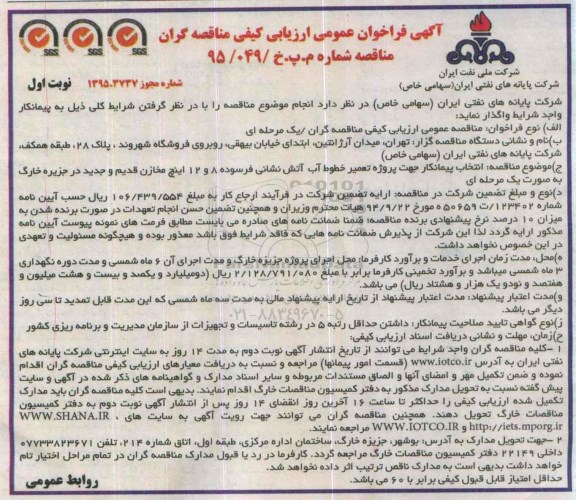 آگهی فراخوان عمومی ارزیابی کیفی مناقصه گران
مناقصه شماره م.پ.خ /۰۴۹/ ۹۵
شرکت ملی نفت ایران
شرکت پایانه های نفتی ایران(سهامی خاص)
شماره مجوز ۱۳۹۵.۳۷۳۷
نوبت اول
شرکت پایانه های نفتی ایران (سهامی خاص) در نظر دارد انجام موضوع مناقصه را با در نظر گرفتن شرایط کلی ذیل به پیمانکار
واجد شرایط واگذار نماید:
الف) نوع فراخوان: مناقصه عمومی ارزیابی کیفی مناقصه گران /یک مرحله ای
ب)نام و نشانی دستگاه مناقصه گزار: تهران، میدان آرژانتین، ابتدای خیابان بیهقی، روبروی فروشگاه شهروند ، پلاک ۲۸، طبقه همکف،
شرکت پایانه های نفتی ایران (سهامی خاص)
ج)موضوع مناقصه: انتخاب پیمانکار جهت پروژه تعمیر خطوط آب آتش نشانی فرسوده ۸ و ۱۲ اینچ مخازن قدیم و جدید در جزیره خارگ
به صورت یک مرحله ای
د)نوع و مبلغ تضمین شرکت در مناقصه: ارایه تضمین شرکت در فرآیند ارجاع کار به مبلغ ۱۰۶/۴۳۹/۵۵۴ ریال حسب آیین نامه
شماره ۱۲۳۴۰۲/ت ۵۰۶۵۹ه مورخ ۹۴/۹/۲۲ هیات محترم وزیران و همچنین تضمین حسن انجام تعهدات در صورت برنده شدن به
میزان ۱۰ درصد نرخ پیشنهادی برنده مناقصه؛ ضمنا ضمانت نامه های صادره می بایست مطابق فرمت های نمونه پیوست آیین نامه
مذکور ارایه گردد لذا این شرکت از پذیرش ضمانت نامه هایی که فاقد شرایط فوق باشد معذور بوده و هیچگونه مسئولیت و تعهدی
در این خصوص نخواهد داشت.
ه)محل، مدت زمان اجرای خدمات و برآورد کارفرما: محل اجرای پروژه جزیره خارگ و مدت اجرای آن ۶ ماه شمسی و مدت دوره نگهداری
۳ ماه شمسی میباشد و برآورد تخمینی کارفرما برابر با مبلغ ۲/۱۲۸/۷۹۱/۰۸۰ ریال (دومیلیارد و یکصد و بیست و هشت میلیون و
هفتصد و نودو یک هزار و هشتاد ریال) می باشد.
و)مدت اعتبار پیشنهاد: مدت اعتبار پیشنهاد از تاریخ ارایه پیشنهاد مالی به مدت سه ماه شمسی که این مدت قابل تمدید تا سی روز
دیگر می باشد.
ز)نوع گواهی تایید صلاحیت پیمانکار: داشتن حداقل رتبه ۵ در رشته تاسیسات و تجهیزات از سازمان مدیریت و برنامه ریزی کشور
ح)زمان، مهلت و نشانی دریافت اسناد ارزیابی کیفی:
۱-کلیه مناقصه گران واجد شرایط می توانند از تاریخ انتشار آگهی نوبت دوم به مدت ۱۴ روز به سایت اینترنتی شرکت پایانه های
نفتی ایران به آدرس www.iotco.ir (قسمت امور پیمانها) مراجعه و نسبت به دریافت معیارهای ارزیابی کیفی مناقصه گران اقدام
نموده و ضمن تکمیل مهر و امضای آنها و الصاق مستندات مربوطه و سایر اسناد مدارک و گواهینامه های ذکر شده در آگهی و سایت
پیش گفته نسبت به تحویل مدارک مذکور به دفتر کمیسیون مناقصات خارگ اقدام نمایند. بدیهی است کلیه مناقصه گران باید مدارک
تکمیل شده ارزیابی کیفی را حداکثر تا ساعت ۱۶ آخرین روز انقضای ۱۴ روز پس از انتشار آگهی نوبت دوم به دفتر کمیسیون
مناقصات خارگ تحویل دهند. همچنین مناقصه گران می توانند جهت رویت آگهی به سایت های WWW.SHANA.IR ،
http://iets.mporg.ir و WWW.IOTCO.IR مراجعه نمایند.
۲-جهت تحویل مدارک به آدرس: بوشهر، جزیره خارگ، ساختمان اداره مرکزی، طبقه اول، اتاق شماره ۲۱۴، تلفن ۰۷۷۳۳۸۲۳۶۷۱
داخلی ۲۲۱۴۹ دفتر کمیسیون مناقصات خارگ مراجعه گردد. کارفرما در رد یا قبول مدارک مناقصه گران در تمام مراحل اختیار تام
خواهد داشت بدیهی است به مدارک ناقص ترتیب اثر داده نخواهد شد.
حداقل امتیاز قابل قبول کیفی برابر با ۶۰ می باشد.
روابط عمومی
۰۲۱-۸۸۳۴۹۶۷۰-۵